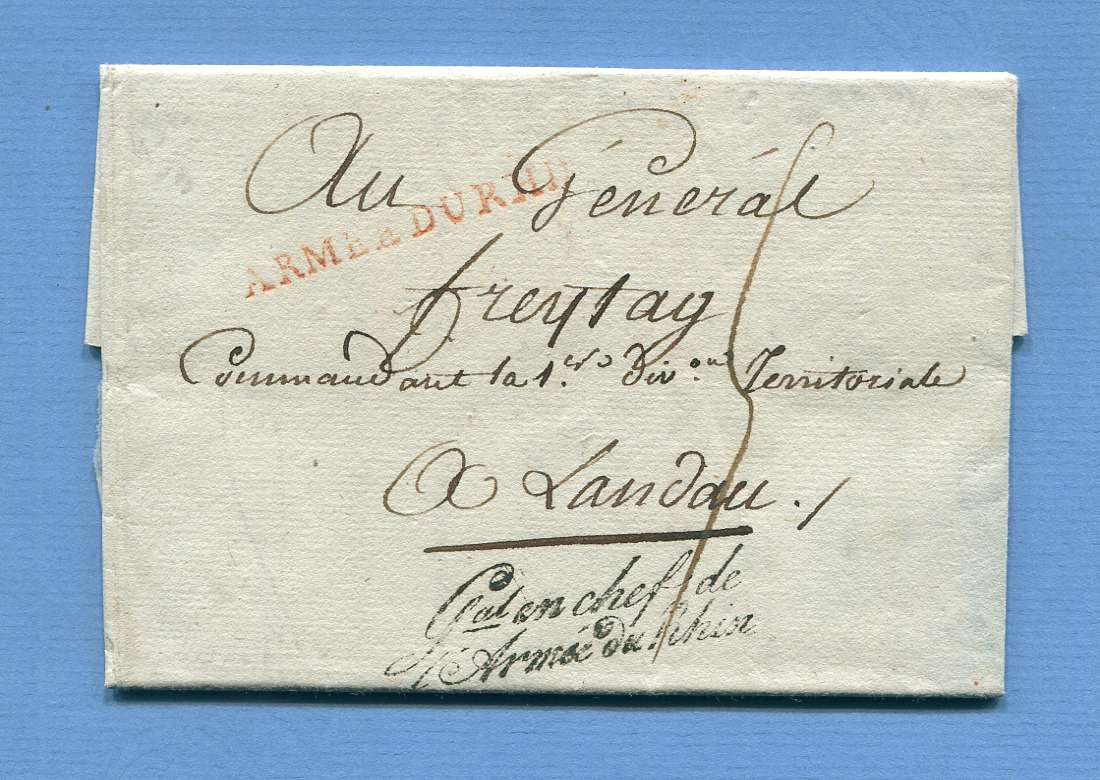 Au Général
ARMÉE DU RHIN
freytag
Commandant la 1.re Div.on Territoriale
A Landau ./
Gal en chef de
l'Armée du Rhin